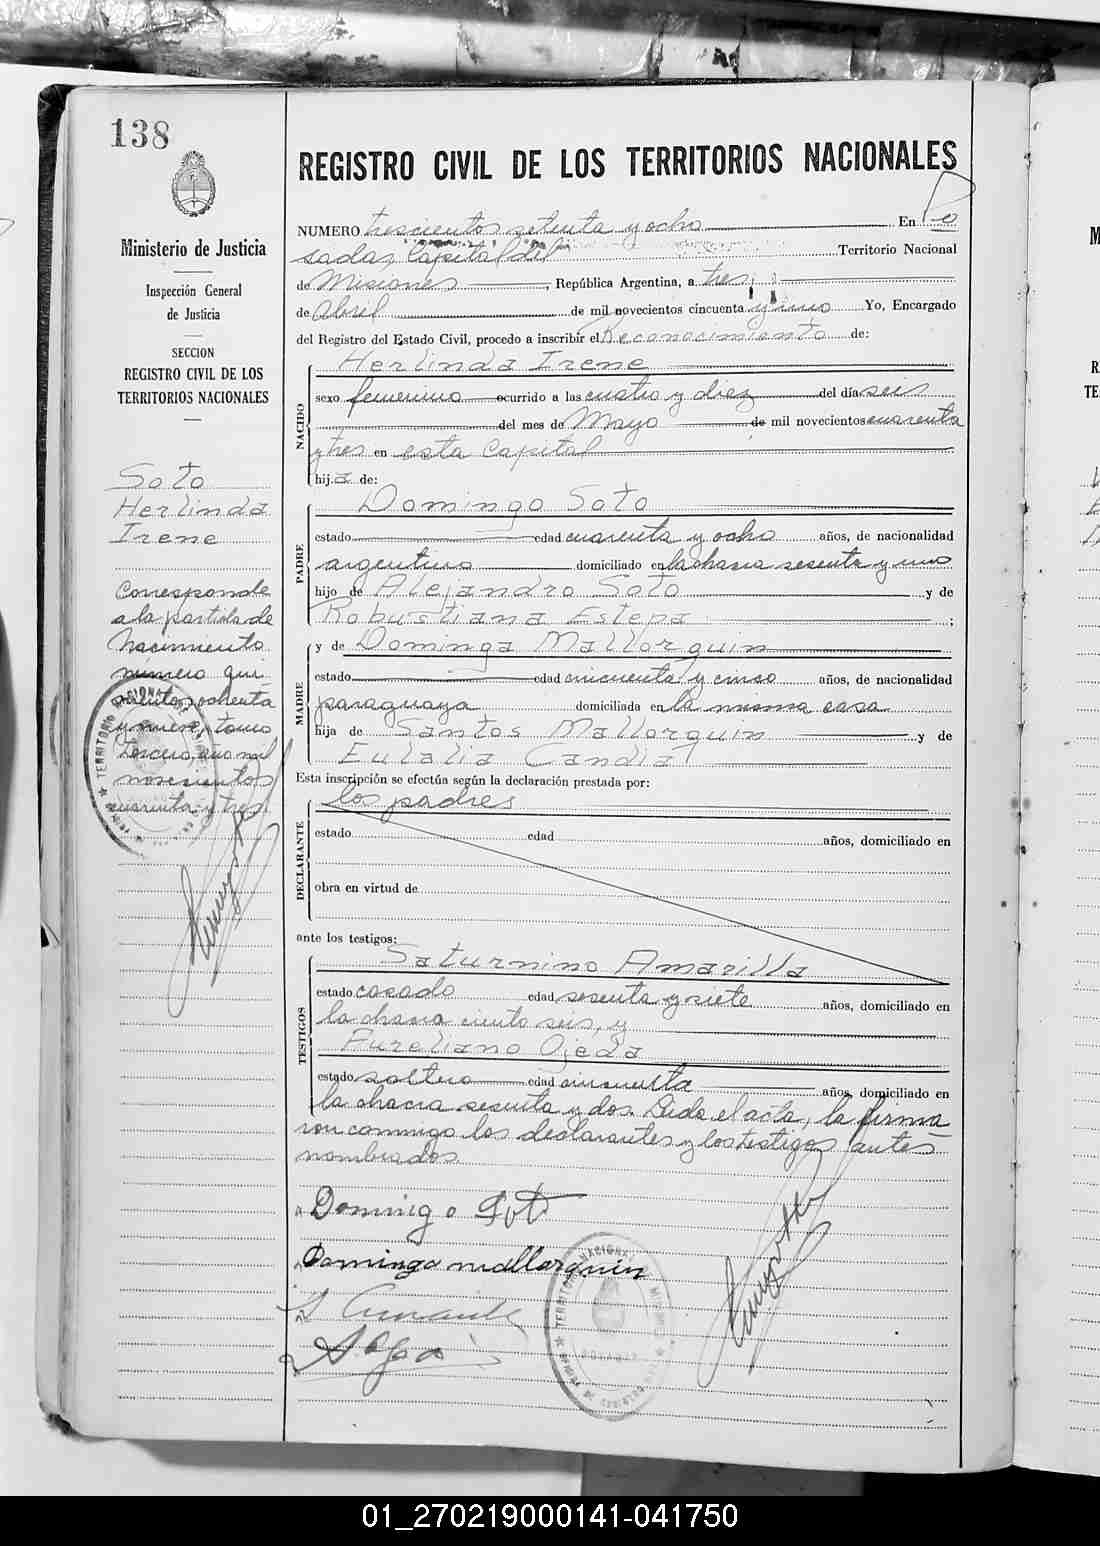 138
Ministerio de Justicia
Inspección General
de Justicia
SECCION
REGISTRO CIVIL DE LOS
TERRITORIOS NACIONALES
Soto
Herlinda
Irene
Corresponde
a la partida de
Nacimiento
número qui
nientos ochenta
y nueve, tomo
tercero, año mil
novecientos
cuarenta y tres
REGISTRO CIVIL DE LOS TERRITORIOS NACIONALES
NUMERO trescientos setenta y ocho En Po
sadas, Capital del Territorio Nacional
de Misiones, República Argentina, a tres
de Abril de mil novecientos cincuenta y uno Yo, Encargado
del Registro del Estado Civil, procedo a inscribir el Reconocimiento de:
NACIDO
Herlinda Irene
sexo femenino ocurrido a las cuatro y diez del día seis
del mes de Mayo de mil novecientos cuarenta
y tres en esta Capital
hija de:
PADRE
Domingo Soto
estado edad cuarenta y ocho años, de nacionalidad
argentino domiciliado en la chacra sesenta y uno
hijo de Alejandro Soto y de
Robustiana Estepa ;
MADRE
y de Dominga Mallorquin
estado edad cincuenta y cinco años, de nacionalidad
paraguaya domiciliada en la misma casa
hija de Santos Mallorquin y de
Eulalia Candia
Esta inscripción se efectúa según la declaración prestada por:
DECLARANTE
los padres
estado edad años, domiciliado en
obra en virtud de
ante los testigos:
TESTIGOS
Saturnino Amarilla
estado casado edad sesenta y siete años, domiciliado en
la chacra ciento seis, y
Aureliano Ojeda
estado soltero edad cincuenta años, domiciliado en
la chacra sesenta y dos. Leída el acta, la firma
ron conmigo los declarantes y los testigos antes
nombrados.
Domingo Soto
Dominga mallorquin
01_270219000141-041750